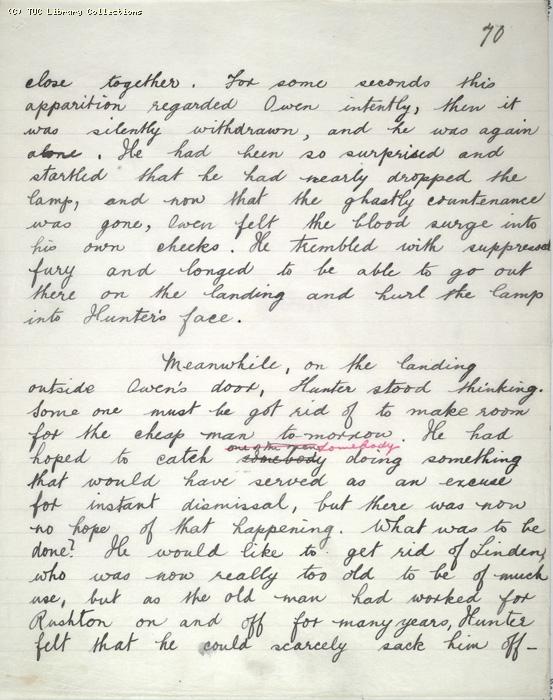 (C) TUC Library Collections
70
close together. For some seconds this
apparition regarded Owen intently, then it
was silently withdrawn, and he was again
alone. He had been so surprised and
startled that he had nearly dropped the
lamp, and now that the ghastly countenance
was gone, Owen felt the blood surge into
his own cheeks. He trembled with suppressed
fury and longed to be able to go out
there on the landing and hurl the lamp
into Hunter's face.
Meanwhile, on the landing
outside Owen's door, Hunter stood thinking.
Some one must be got rid of to make room
for the cheap man to-morrow. He had
one of the men somebody
hoped to catch somebody doing something
that would have served as an excuse
for instant dismissal, but there was now
no hope of that happening. What was to be
done? He would like to get rid of Linden,
who was now really too old to be of much
use, but as the old man had worked for
Rushton on and off for many years, Hunter
felt that he could scarcely sack him off-